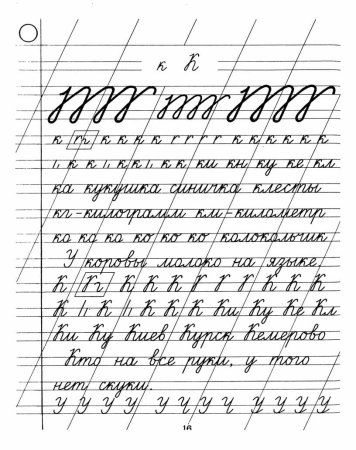 к К
к к к к к к г г г г к к к к к к
к к к к ки кн ку ке кл
ка кукушка синичка клесты
кг - килограмм км - километр
ко ко ко ко ко ко колокольчик
У коровы молоко на языке.
К К К К К К К К К
К К К К К Ки Ку Ке Кл
Ки Ку Киев Курск Кемерово
Кто на все руки, у того
нет скуки.
У У У У У У У У У У У У
16